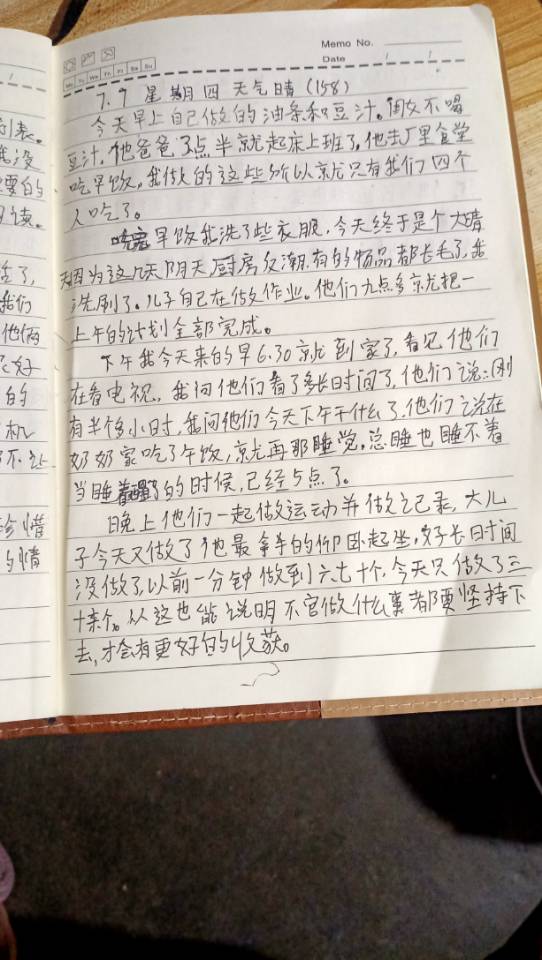 Memo No.
Date
Mo Tu We Th Fr Sa Su
7.9 星期四 天气晴(158)
今天早上自己做的油条和豆汁。闺女不喝
豆汁。他爸爸3点半就起床上班了,他去厂里食堂
吃早饭。我做的这些所以就只有我们四个
人吃了。
吃完早饭我洗了些衣服,今天终于是个大晴
天因为这几天阴天厨房反潮,有的物品都长毛了,我
洗刷了。儿子自己在做作业。他们九点多就把一
上午的计划全部完成。
下午我今天来的早6.30就到家了,看见他们
在看电视。我问他们看了多长时间了,他们说:刚
有半个多小时,我问他们今天下午干什么了,他们说在
奶奶家吃了午饭,就再那睡觉。总睡也睡不着
当睡醒了的时候,已经5点了。
晚上他们一起做运动并做记录,大儿
子今天又做了他最拿手的仰卧起坐,好长时间
没做了,以前一分钟做到六七十个,今天只做了三
十来个。从这也能说明不管做什么事都要坚持下
去,才会有更好的收获。
我没
要的
我们
他俩
好
的
机
不让
珍惜
情